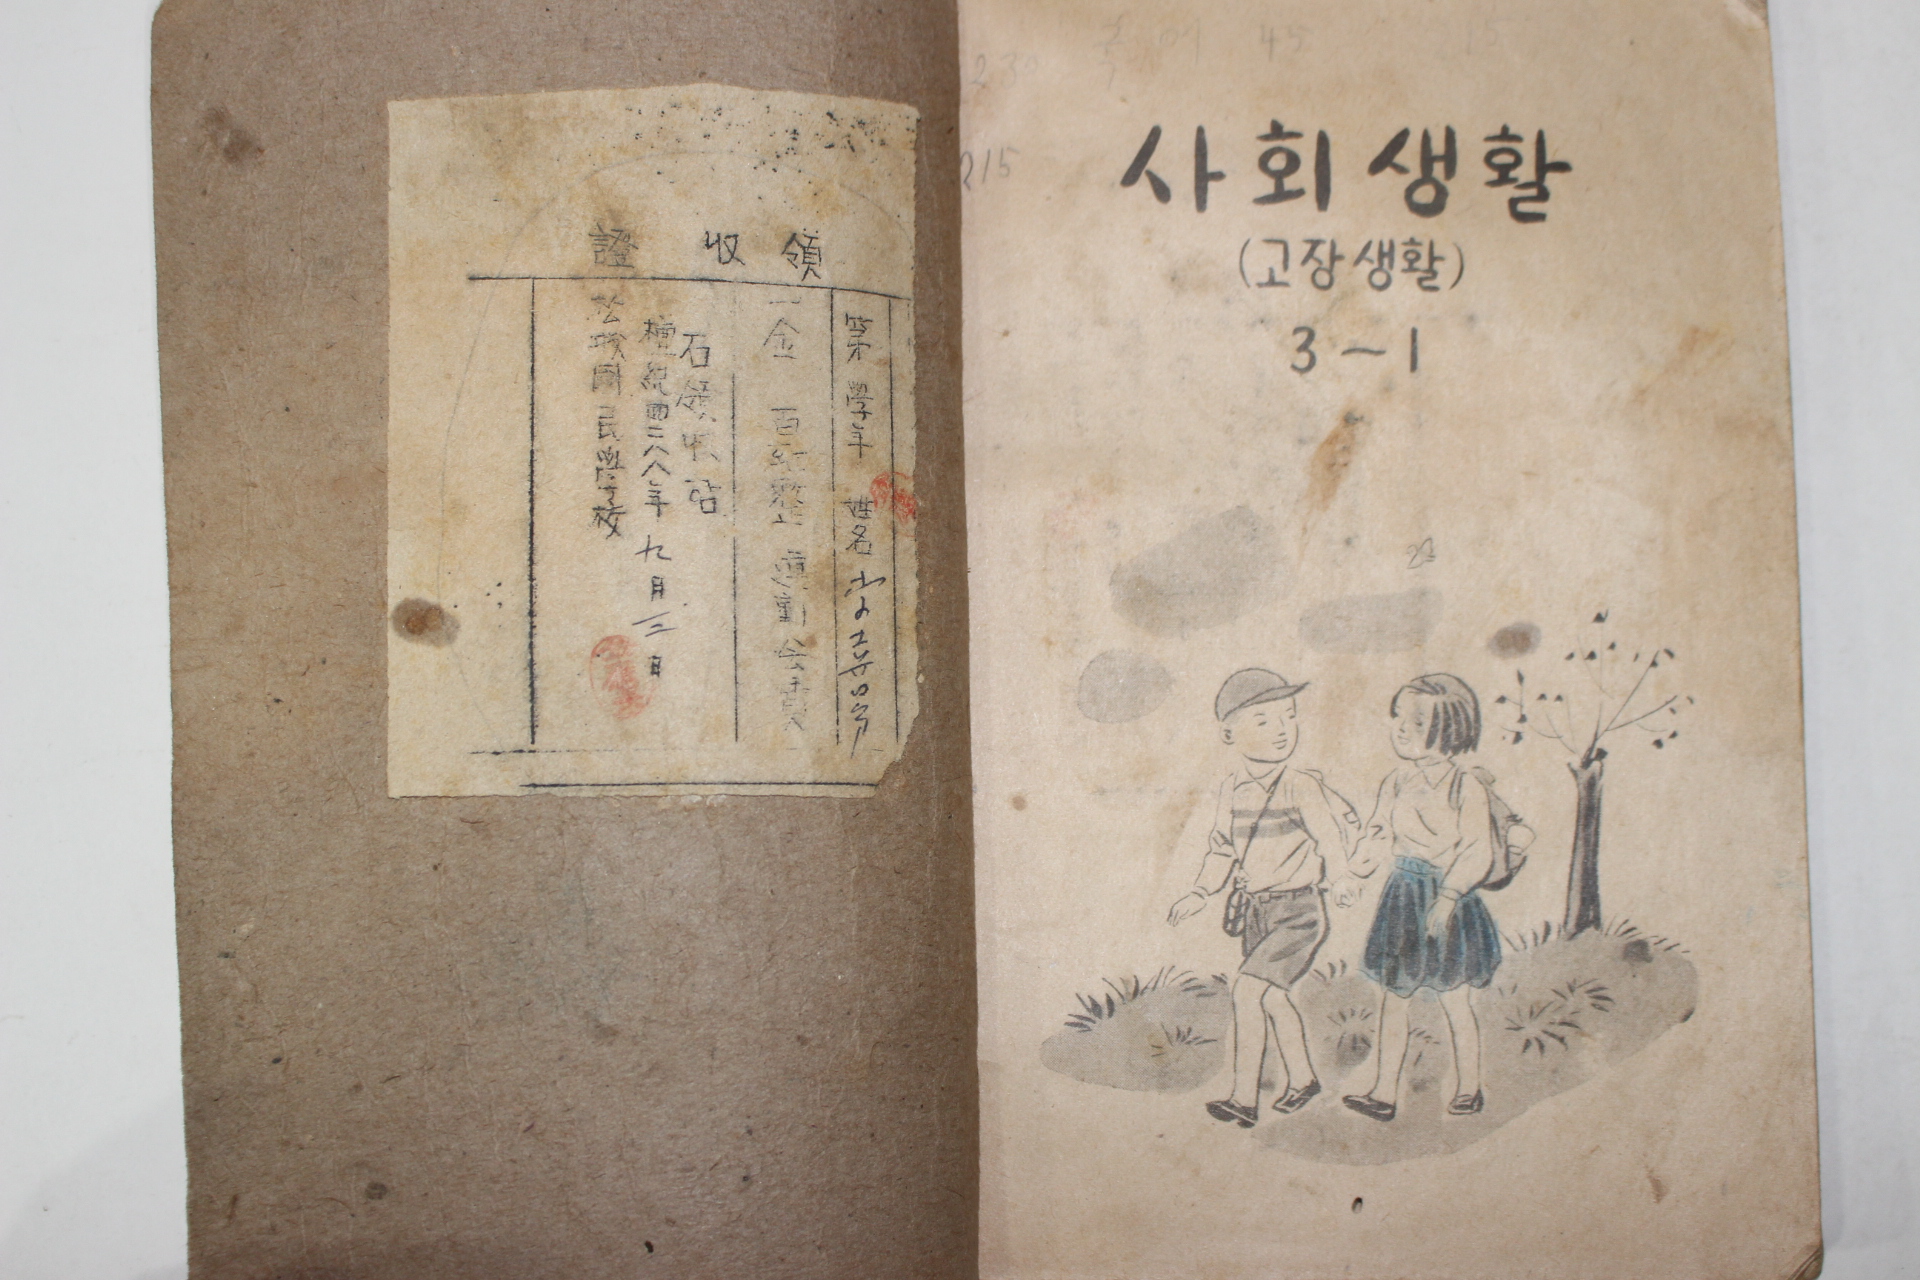 領收證
第 學年 姓名
一金 百 整 運動會費
石領收
檀紀四二八八年 九月 三日
國民學校
215
사회생활
(고장생활)
3-1